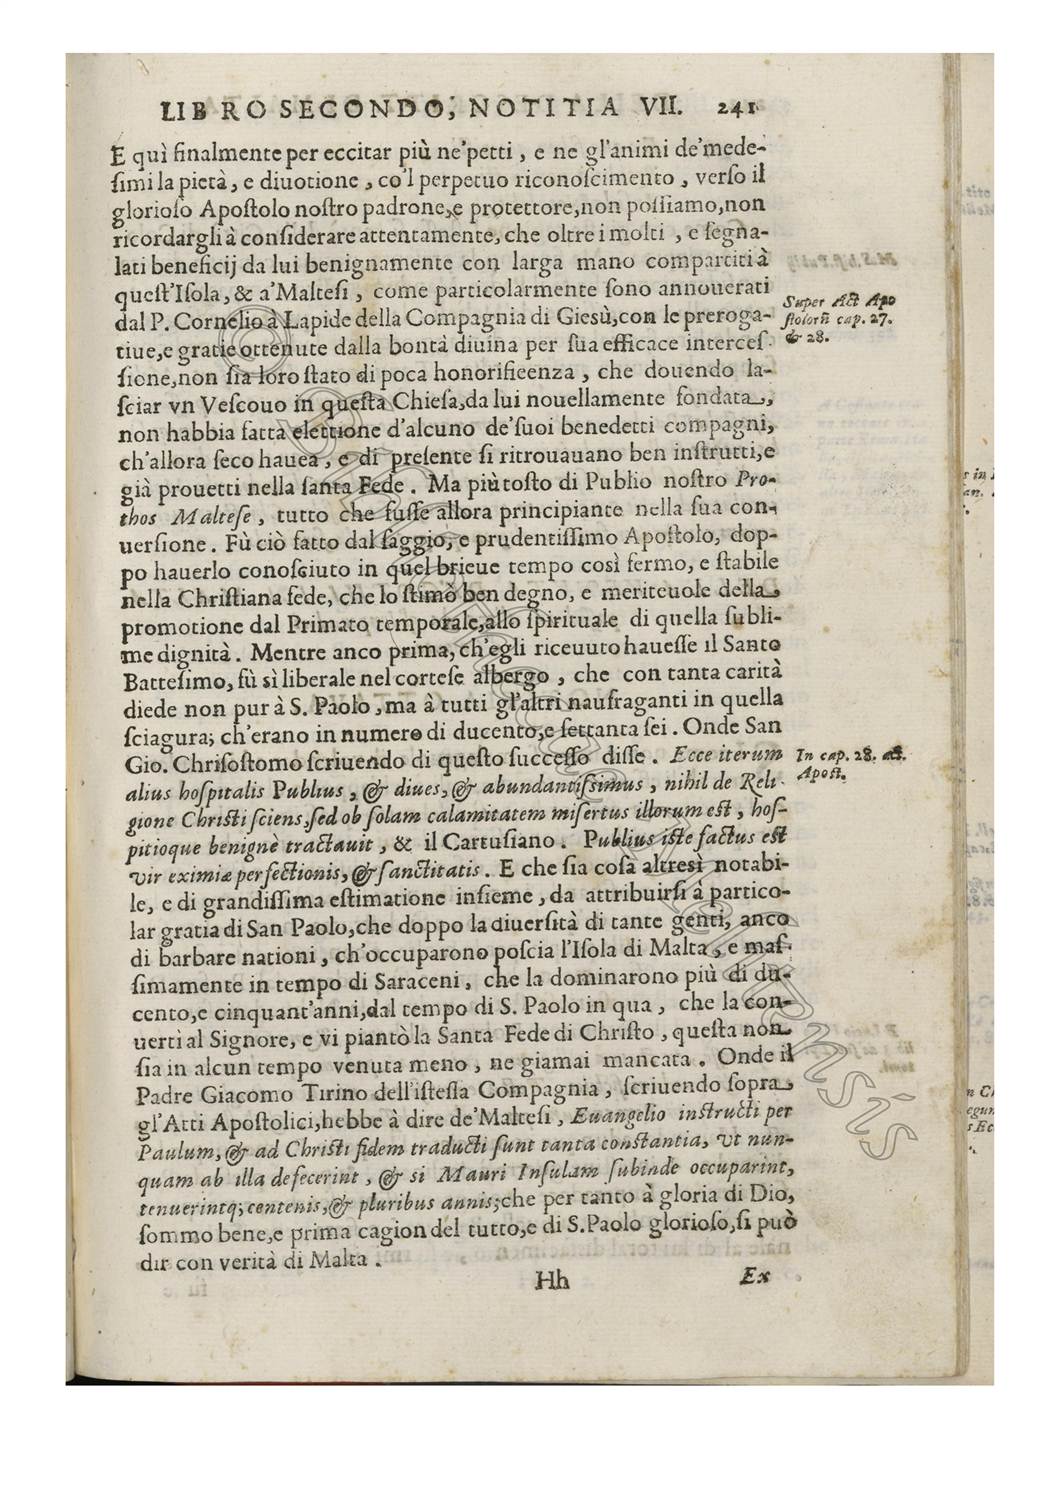 LIBRO SECONDO, NOTITIA VII. 241
E quì finalmente per eccitar più ne'petti, e ne gl'animi de'mede-
ſimi la pietà, e diuotione, co'l perpetuo riconoſcimento, verſo il
glorioſo Apoſtolo noſtro padrone, e protettore, non poſſiamo, non
ricordargli à conſiderare attentamente, che oltre i molti, e ſegna-
lati beneficij da lui benignamente con larga mano compartiti à
queſt'Iſola, & a'Malteſi, come particolarmente ſono annouerati
dal P. Cornelio à Lapide della Compagnia di Giesù, con le preroga-
tiue, e gratie ottenute dalla bontà diuina per ſua efficace interceſ-
ſione, non ſia loro ſtato di poca honorificenza, che douendo la-
ſciar vn Veſcouo in queſta Chieſa, da lui nouellamente fondata,
non habbia fatta elettione d'alcuno de'ſuoi benedetti compagni,
ch'allora ſeco hauea, e di preſente ſi ritrouauano ben inſtrutti, e
già prouetti nella ſanta Fede. Ma più toſto di Publio noſtro Pro-
thos Malteſe, tutto che fuſſe allora principiante nella ſua con-
uerſione. Fù ciò fatto dal ſaggio, e prudentiſſimo Apoſtolo, dop-
po hauerlo conoſciuto in quel brieue tempo così fermo, e ſtabile
nella Chriſtiana fede, che lo ſtimò ben degno, e meriteuole della
promotione dal Primato temporale, allo ſpirituale di quella ſubli-
me dignità. Mentre anco prima, ch'egli riceuuto haueſſe il Santo
Batteſimo, fù sì liberale nel corteſe albergo, che con tanta carità
diede non pur à S. Paolo, ma à tutti gl'altri naufraganti in quella
ſciagura; ch'erano in numero di ducento, e ſettanta ſei. Onde San
Gio. Chriſoſtomo ſcriuendo di queſto ſucceſſo diſſe. Ecce iterum
alius hoſpitalis Publius, & diues, & abundantiſſimus, nihil de Reli-
gione Chriſti ſciens, ſed ob ſolam calamitatem miſertus illorum eſt, hoſ-
pitioque benignè tractauit, & il Cartuſiano. Publius iſte factus eſt
vir eximiæ perfectionis, & ſanctitatis. E che ſia coſa altresì notabi-
le, e di grandiſſima eſtimatione inſieme, da attribuirſi à partico-
lar gratia di San Paolo, che doppo la diuerſità di tante genti, anco
di barbare nationi, ch'occuparono poſcia l'Iſola di Malta, e maſ-
ſimamente in tempo di Saraceni, che la dominarono più di du-
cento, e cinquant'anni, dal tempo di S. Paolo in qua, che la con-
uertì al Signore, e vi piantò la Santa Fede di Chriſto, queſta non
ſia in alcun tempo venuta meno, ne giamai mancata. Onde il
Padre Giacomo Tirino dell'iſteſſa Compagnia, ſcriuendo ſopra
gl'Atti Apoſtolici, hebbe à dire de'Malteſi, Euangelio inſtructi per
Paulum, & ad Chriſti fidem traducti ſunt tanta conſtantia, vt nun-
quam ab illa defecerint, & ſi Mauri Inſulam ſubinde occuparint,
tenuerintq; centenis, & pluribus annis; che per tanto à gloria di Dio,
ſommo bene, e prima cagion del tutto, e di S. Paolo glorioſo, ſi può
dir con verità di Malta.
Hh Ex
Super Act Apo
ſtolorũ cap. 27.
& 28.
In cap. 28. act.
Apoſt.